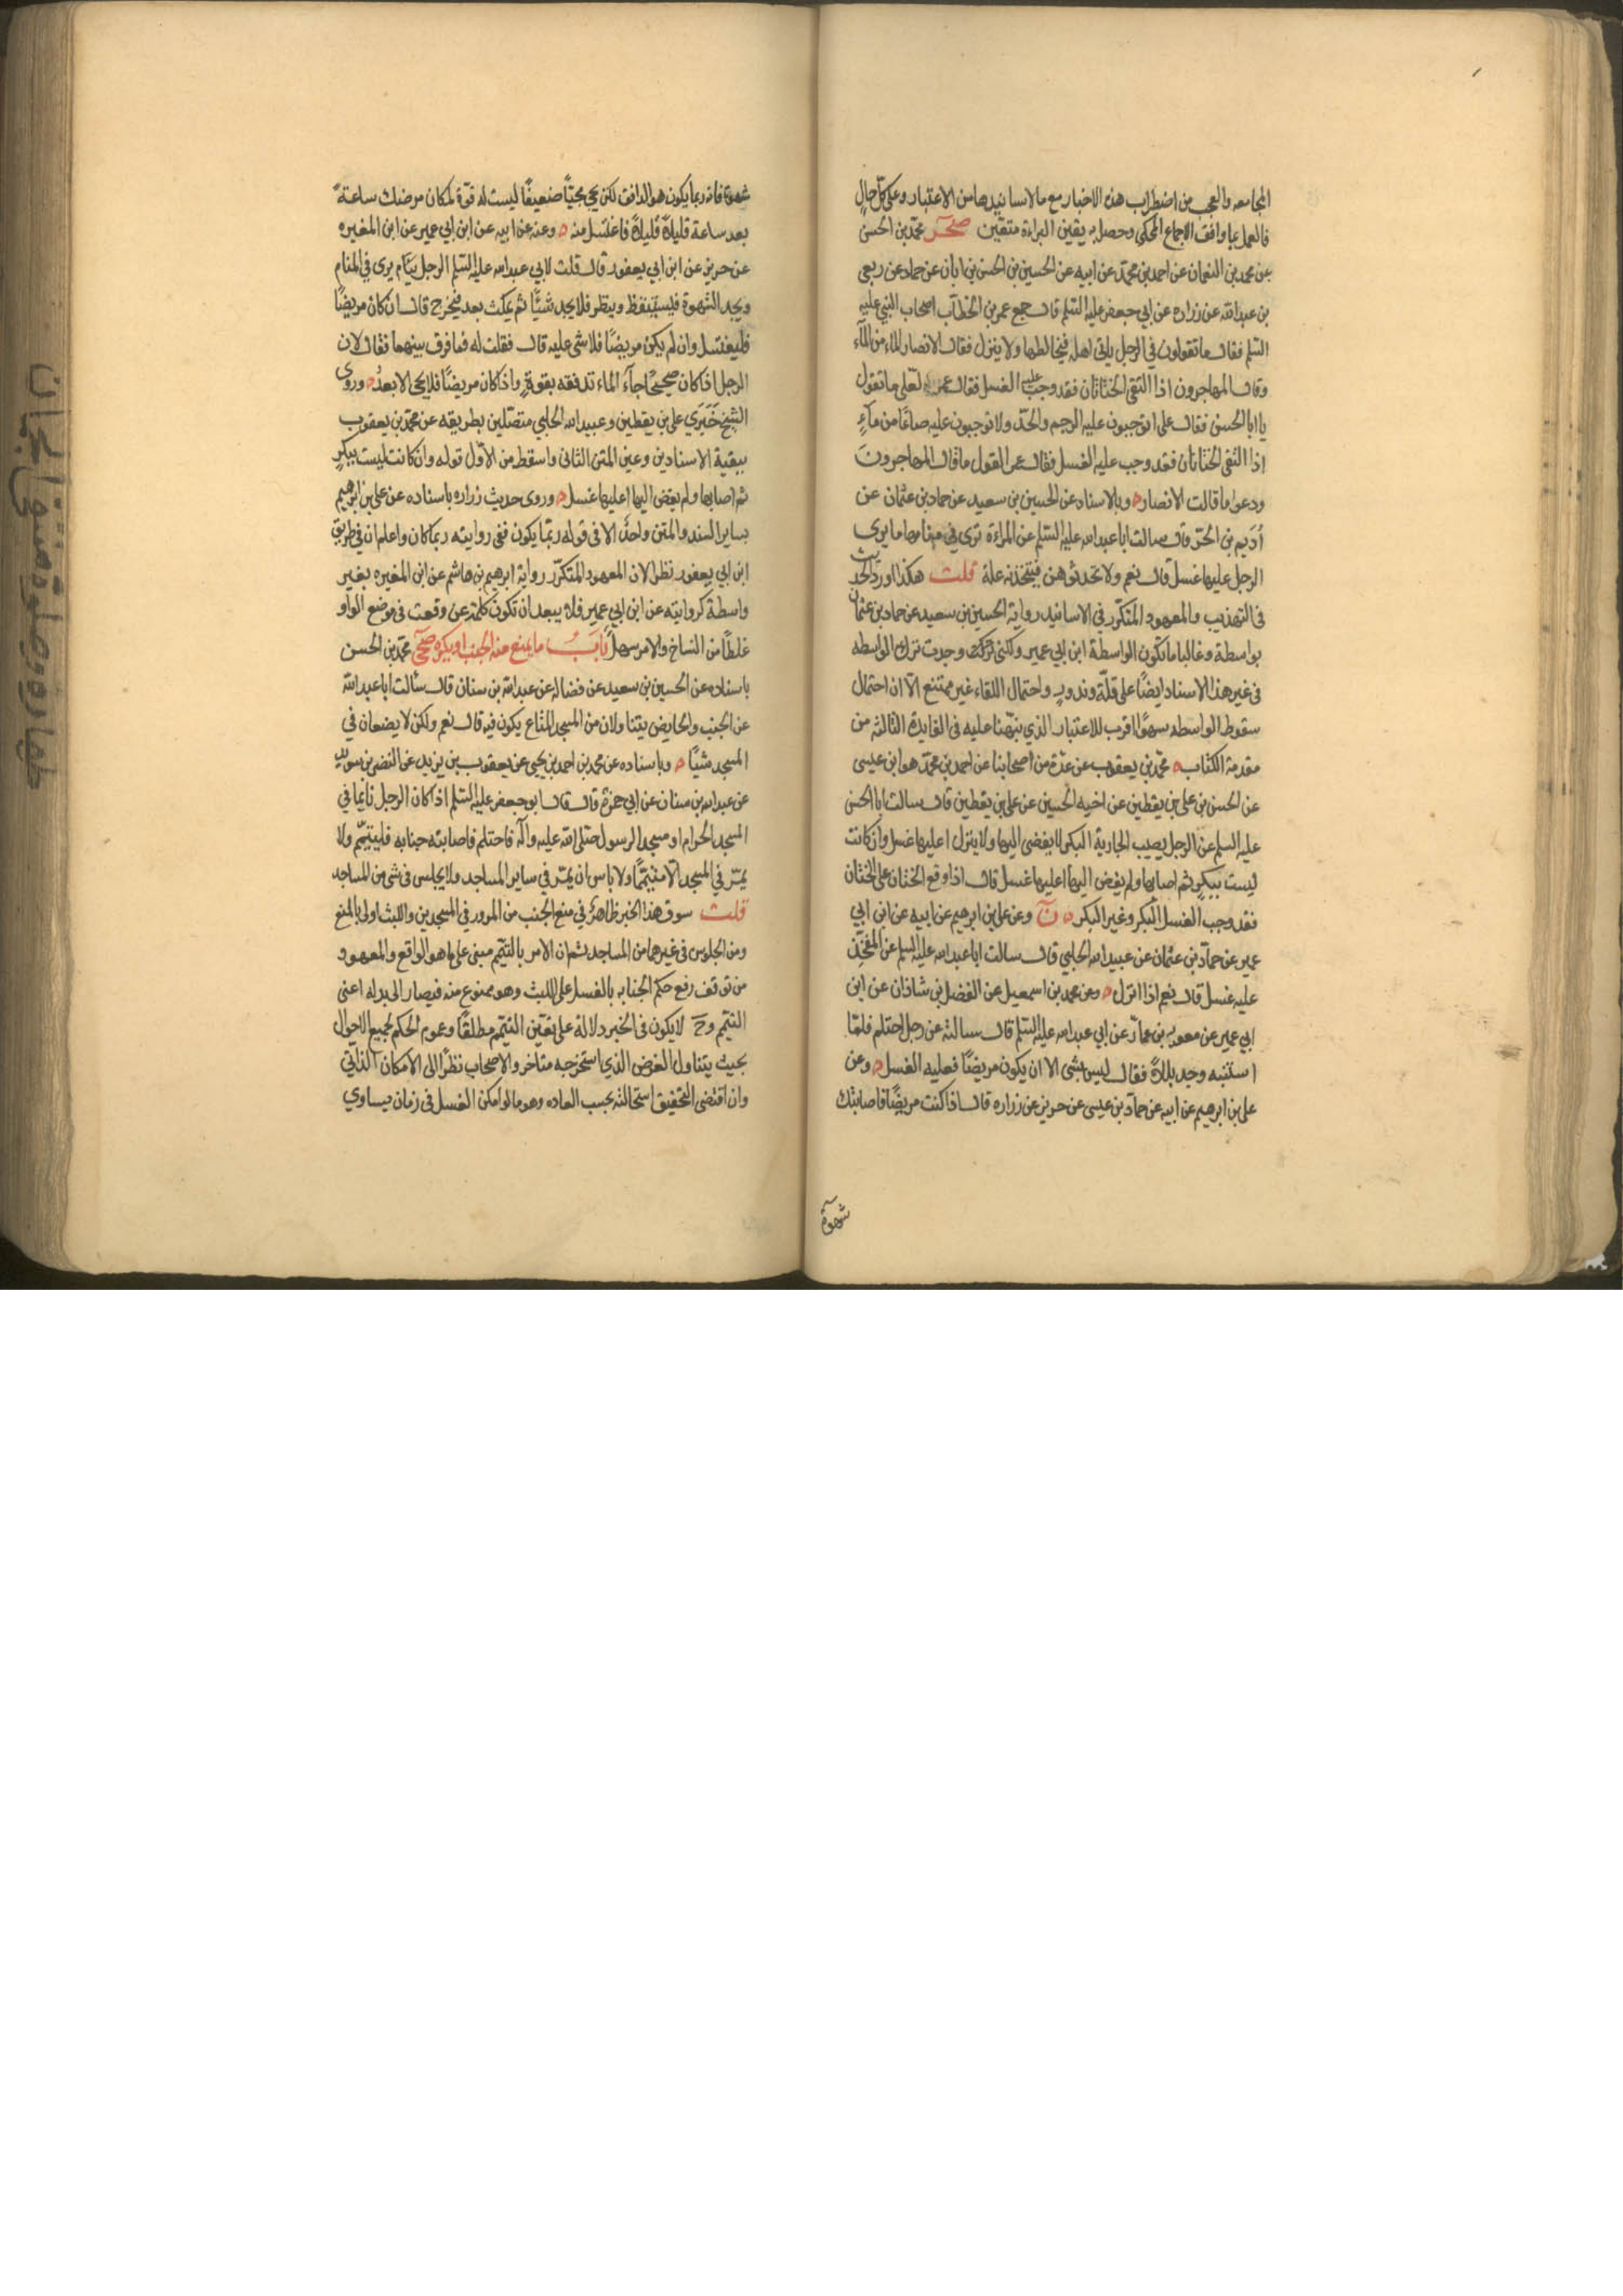 المجامعه والعجب من اضطراب هذه الاخبار مع ما لاسانيدها من الاعتبار وعلى كل حال
فالعمل بما وافق الاجماع المحكي وحصل به يقين البراءة متعين صحر محمد بن الحسن
عن محمد بن النعمان عن احمد بن محمد عن ابيه عن الحسين بن الحسن بن ابان عن حماد عن ربعي
بن عبدالله عن زراره عن ابي جعفر عليه السلم قال جمع عمر بن الخطاب اصحاب النبي عليه
السلم فقال ما تقولون في الرجل ياتي اهله فيخالطها ولا ينزل فقال الانصار الماء من الماء
وقال المهاجرون اذا التقى الختانان فقد وجب عليه الغسل فقال عمر لعلي ما تقول
يا ابا الحسن فقال علي اتوجبون عليه الرجم والحد ولا توجبون عليه صاعًا من ماءٍ
اذا التقى الختانان فقد وجب عليه الغسل فقال عمر القول ما قال المهاجرون
ودعوا ما قالت الانصار ه وبالاسناد عن الحسين بن سعيد عن حماد بن عثمان عن
اُدَيم بن الحر قال سالت ابا عبدالله عليه السلم عن المراءة ترى في منامها ما يرى
الرجل عليها غسل قال نعم ولا تحدثوهن فيتخذنه علة قلت هكذا اورد الحديث
في التهذيب والمعهود المتكرر في الاسانيد رواية الحسين بن سعيد عن حماد بن عثمان
بواسطة وغالبا ما تكون الواسطة ابن ابي عمير ولكنى وجدت ترك الواسطه
في غير هذا الاسناد ايضًا على قلّة وندوبٍ واحتمال اللقاء غير ممتنع الّا ان احتمال
سقوط الواسطه سهوًا اقرب للاعتبار الذي نبّهنا عليه في الفايدة الثالثه من
مقدمة الكتاب ه محمد بن يعقوب عن عدّة من اصحابنا عن احمد بن محمد هو ابن عيسى
عن الحسن بن علي بن يقطين عن اخيه الحسين عن علي بن يقطين قال سالت ابا الحسن
عليه السلم عن الرجل يصيب الجارية البكر لا يفضى اليها ولا ينزل اعليها غسل وان كانت
ليست ببكرٍ ثم اصابها ولم يفض اليها اعليها غسل قال اذا وقع الختان على الختان
فقد وجب الغسل البكر وغير البكر ه ن وعن علي بن ابرهيم عن ابيه عن ابن ابي
عمير عن حماد بن عثمان عن عبيدالله الحلبي قال سالت ابا عبدالله عليه السلم عن المفخّذ
عليه غسل قال نعم اذا انزل ه وعن محمد بن اسمعيل عن الفضل بن شاذان عن ابن
ابي عمير عن معويه بن عمار عن ابي عبدالله عليه السلم قال سالته عن رجل احتلم فلمّا
استنبه وجد بللاً فقال ليس بشى الا ان يكون مريضًا فعليه الغسل ه وعن
علي بن ابرهيم عن ابيه عن حماد بن عيسى عن حريز عن زراره قال اذا كنت مريضًا فاصابتك
شهوة
شهوة فانه ربما يكون هو الدافق لكن يجئ مجيًا ضعيفًا ليست له قوّة لمكان مرضك ساعةً
بعد ساعة قليلاً قليلاً فاغتسل منه ه وعنه عن ابيه عن ابن ابي عمير عن ابن المغيره
عن حريز عن ابن ابي يعفور قال قلت لابي عبدالله عليه السلم الرجل ينام يرى في المنام
ويجد الشهوة فيستيقظ وينظر فلا يجد شيئًا ثم يمكث بعد فيخرج قال ان كان مريضًا
فليغتسل وان لم يكن مريضًا فلا شى عليه قال فقلت له فما فرق بينهما فقال لان
الرجل اذا كان صحيحًا جآء الماء تدفقه بقوةٍ واذا كان مريضًا فلا يجى الا بعدُ ه وروى
الشيخ خَبَرَي علي بن يقطين وعبيدالله الحلبي متصلين بطريقه عن محمد بن يعقوب
ببقية الاسنادين وعين المتن الثاني واسقط من الاوّل قوله وان كانت ليست ببكرٍ
ثم اصابها ولم يفض اليها اعليها غسل ه وروى حديث زراره باسناده عن علي بن ابرهيم
بساير السند والمتن واحدٌ الا في قوله ربّما يكون ففى روايته ربما كان واعلم ان في طريق
ابن ابي يعفور نظرا لان المعهود المتكرّر رواية ابرهيم بن هاشم عن ابن المغيره بغير
واسطة كروايته عن ابن ابي عمير فلا يبعد ان تكون كلمة عن وقعت في موضع الواو
غلطًا من النساخ والامر سهل بَابُ ما يمنع منه الجنب او يكره صحى محمد بن الحسن
باسناده عن الحسين بن سعيد عن فضاله عن عبدالله بن سنان قال سألت ابا عبدالله
عن الجنب والحايض يتناولان من المسجد المتاع يكون فيه قال نعم ولكن لا يضعان في
المسجد شيئًا ه وباسناده عن محمد بن احمد بن يحيى عن يعقوب بن يزيد عن النضر بن سويد
عن عبدالله بن سنان عن ابي حمزة قال قال ابو جعفر عليه السلم اذا كان الرجل نايمًا في
المسجد الحرام او مسجد الرسول صلى الله عليه وآله فاحتلم فاصابته جنابه فليتيمّم ولا
يمرّ في المسجد الّا متيمّمًا ولا باس ان يمرّ في ساير المساجد ولا يجلس في شى من المساجد
قلت سوق هذا الخبر ظاهرٌ في منع الجنب من المرور في المسجدين واللبث اولى بالمنع
ومن الجلوس في غيرهما من المساجد ثم ان الامر بالتيمّم مبنى على ما هو الواقع والمعهود
من توقف رفع حكم الجنابه بالغسل على اللبث وهو ممنوع منه فيصار الى بدله اعنى
التيمّم وح لا يكون في الخبر دلالة على تعيّن التيمّم مطلقًا وعموم الحكم لجميع الاحوال
بحيث يتناول الفرض الذي استخرجه متاخروا الاصحاب نظرًا الى الامكان الذاتي
وان اقتضى التحقيق استحالته بحسب العاده وهو ما لو امكن الغسل في زمان يساوي